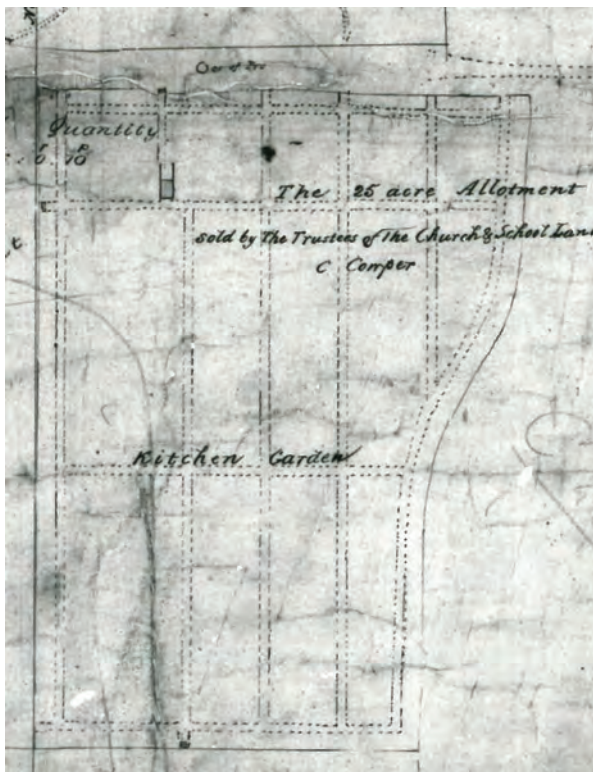 Quantity
The 25 acre Allotment
sold by The Trustees of The Church & School Land
C Comper
Kitchen Garden